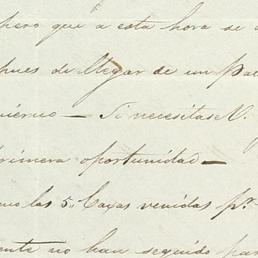 pero que a esta hora se
pues de llegar de un pa
vierno — Si necesitase V.
primera oportunidad —
mo las 5. Caxas venidas pr.
ente no han seguido par